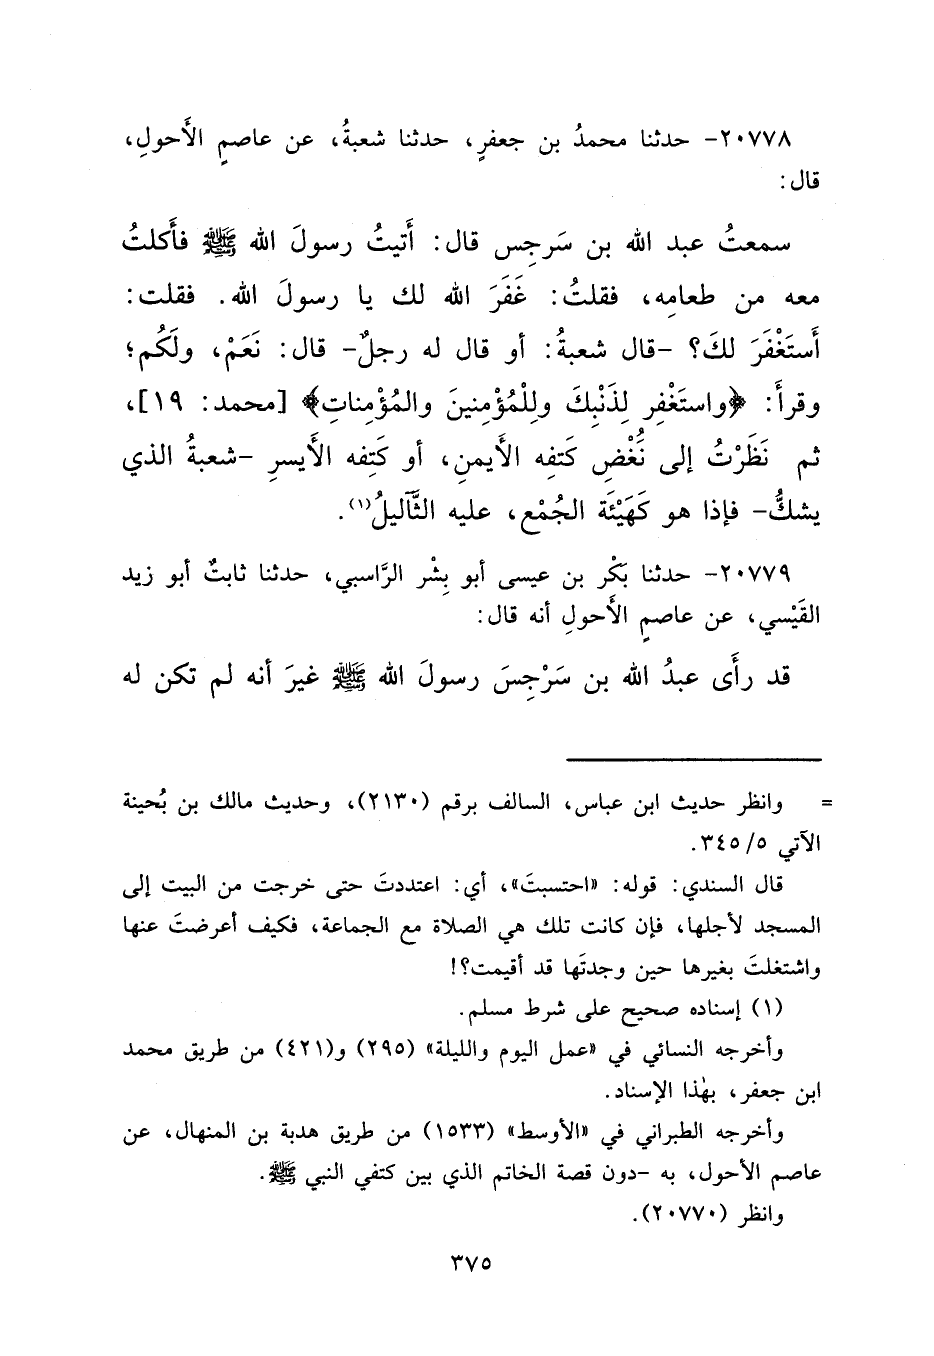 ٢٠٧٧٨- حدثنا محمدُ بن جعفرٍ، حدثنا شعبةُ، عن عاصمٍ الأَحولِ،
قال:
سمعتُ عبد الله بن سَرجِس قال: أَتيتُ رسولَ الله ﷺ فأَكلتُ
معه من طعامِه، فقلتُ: غَفَرَ الله لك يا رسولَ الله. فقلت:
أَستَغْفَرَ لكَ؟ -قال شعبةُ: أو قال له رجلٌ- قال: نَعَمْ، ولَكُم؛
وقرأَ: ﴿واستَغْفِر لِذَنْبِكَ ولِلْمُؤْمِنينَ والمُؤْمِناتِ﴾ [محمد: ١٩]،
ثم نَظَرْتُ إلى نُغْضِ كَتفِه الأَيمنِ، أو كَتِفه الأَيسرِ -شعبةُ الذي
يشكُّ- فإذا هو كَهَيْئَة الجُمْع، عليه الثَّآليلُ(١).
٢٠٧٧٩- حدثنا بَكْر بن عيسى أبو بِشْر الرَّاسبي، حدثنا ثابتٌ أبو زيد
القَيْسي، عن عاصمٍ الأَحولِ أنه قال:
قد رأَى عبدُ الله بن سَرْجِسَ رسولَ الله ﷺ غيرَ أنه لم تكن له
= وانظر حديث ابن عباس، السالف برقم (٢١٣٠)، وحديث مالك بن بُحينة
الآتي ٣٤٥/٥.
قال السندي: قوله: «احتسبتَ»، أي: اعتددتَ حتى خرجت من البيت إلى
المسجد لأجلها، فإن كانت تلك هي الصلاة مع الجماعة، فكيف أعرضتَ عنها
واشتغلتَ بغيرها حين وجدتَها قد أقيمت؟!
(١) إسناده صحيح على شرط مسلم.
وأخرجه النسائي في «عمل اليوم والليلة» (٢٩٥) و(٤٢١) من طريق محمد
ابن جعفر، بهٰذا الإسناد.
وأخرجه الطبراني في «الأوسط» (١٥٣٣) من طريق هدبة بن المنهال، عن
عاصم الأحول، به -دون قصة الخاتم الذي بين كتفي النبي ﷺ.
وانظر (٢٠٧٧٠).
٣٧٥